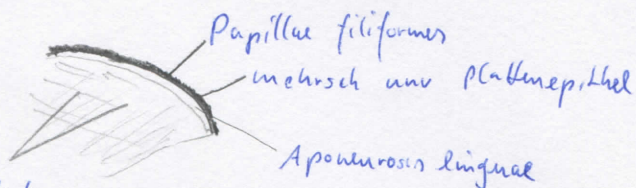 Papillae filiformes
mehrsch unv Plattenepithel
Aponeurosis linguae